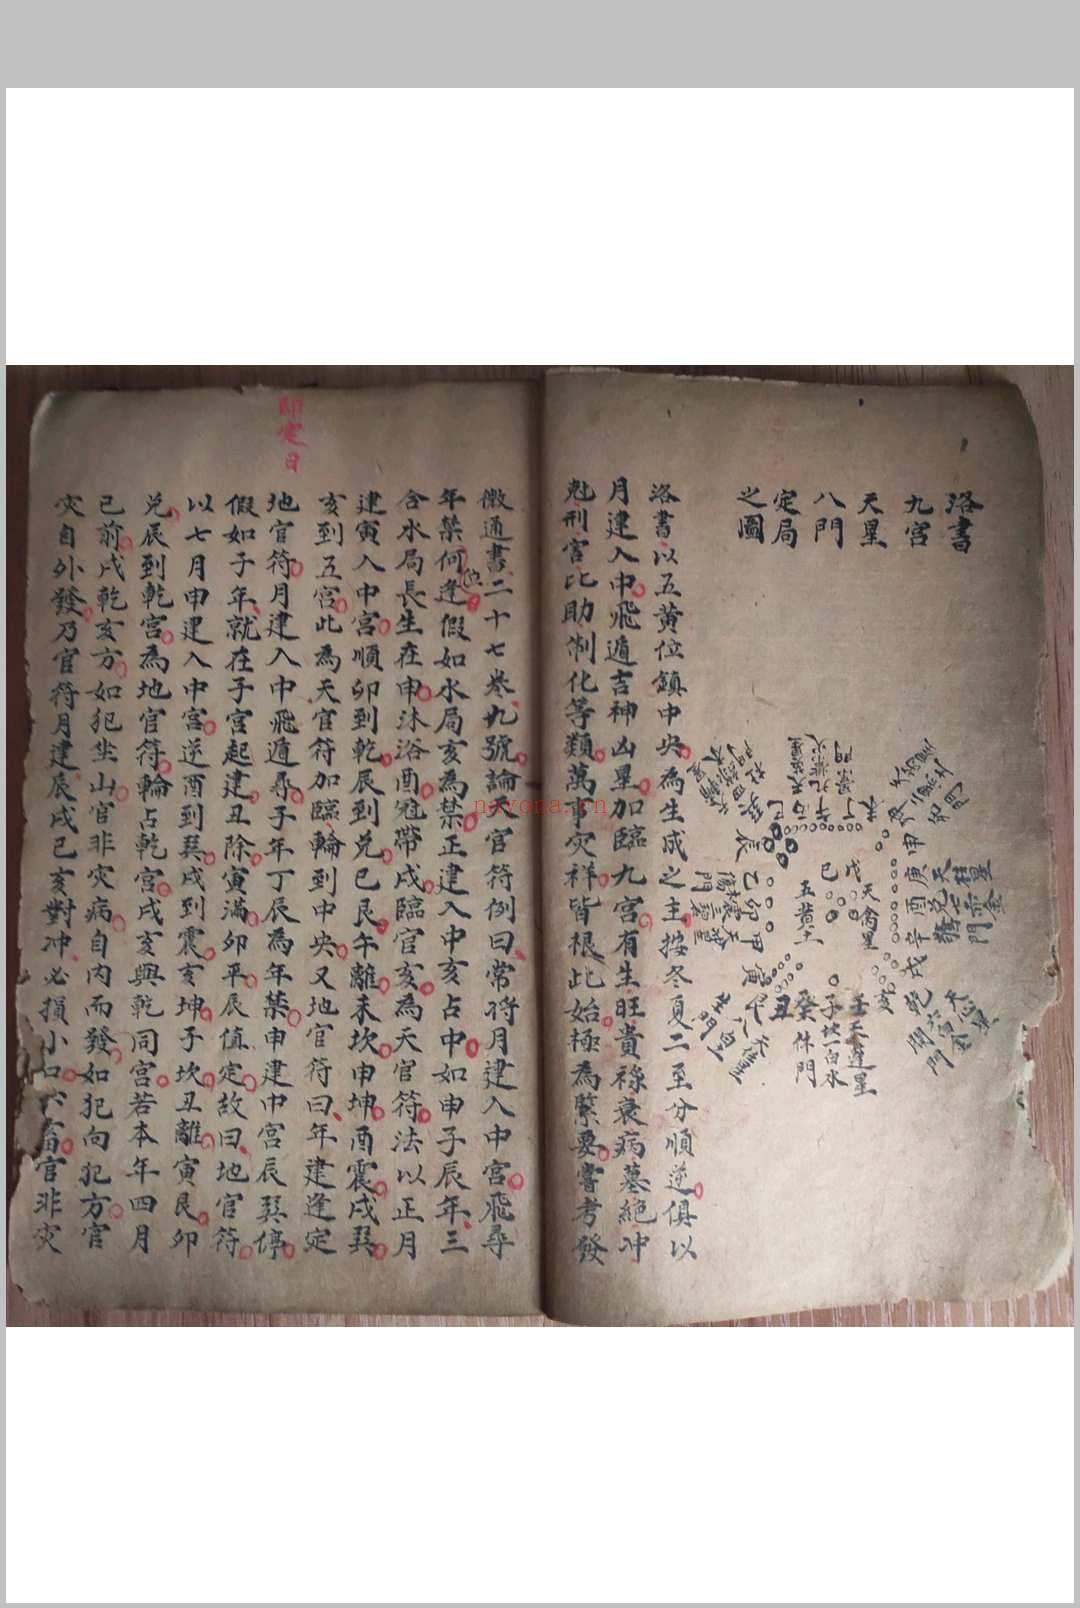 洛書
九宮
天星
八門
定局
之圖
洛書以五黃位鎮中央為生成之主按冬夏二至分順逆俱以
月建入中飛遁吉神凶星加臨九宮有生旺貴祿衰病墓絕冲
尅刑官比助制化等類萬事灾祥皆根此始極為緊要嘗考發
微通書二十七卷九號論天官符例曰常将月建入中宮飛尋
年禁何位逢假如水局亥為禁正建入中亥占中如申子辰年三
合水局長生在申沐浴酉冠帶戌臨官亥為天官符法以正月
建寅入中宮順卯到乾辰到兌巳艮午離未坎申坤酉震戌巽
亥到五宮此為天官符加臨輪到中央又地官符曰年建逢定
地官符月建入中飛遁尋子年丁辰為年禁申建中宮辰巽停
假如子年就在子宮起建丑除寅滿卯平辰值定故曰地官符
以七月申建入中宮逆酉到巽戌到震亥坤子坎丑離寅艮卯
兌辰到乾宮為地官符輪占乾宮戌亥與乾同宮若本年四月
巳前戌乾亥方如犯坐山官非灾病自內而發如犯向犯方官
灾自外發乃官符月建辰戌巳亥對冲必損小口六畜官非灾
即定日
壬天蓬星
子坎一白水
癸休門
天禽星
五黃土
戊
己
丑
亥
庚
酉
辛
戌
乙
卯
甲
寅
辰
巳
丁
未
申
nayona.cn